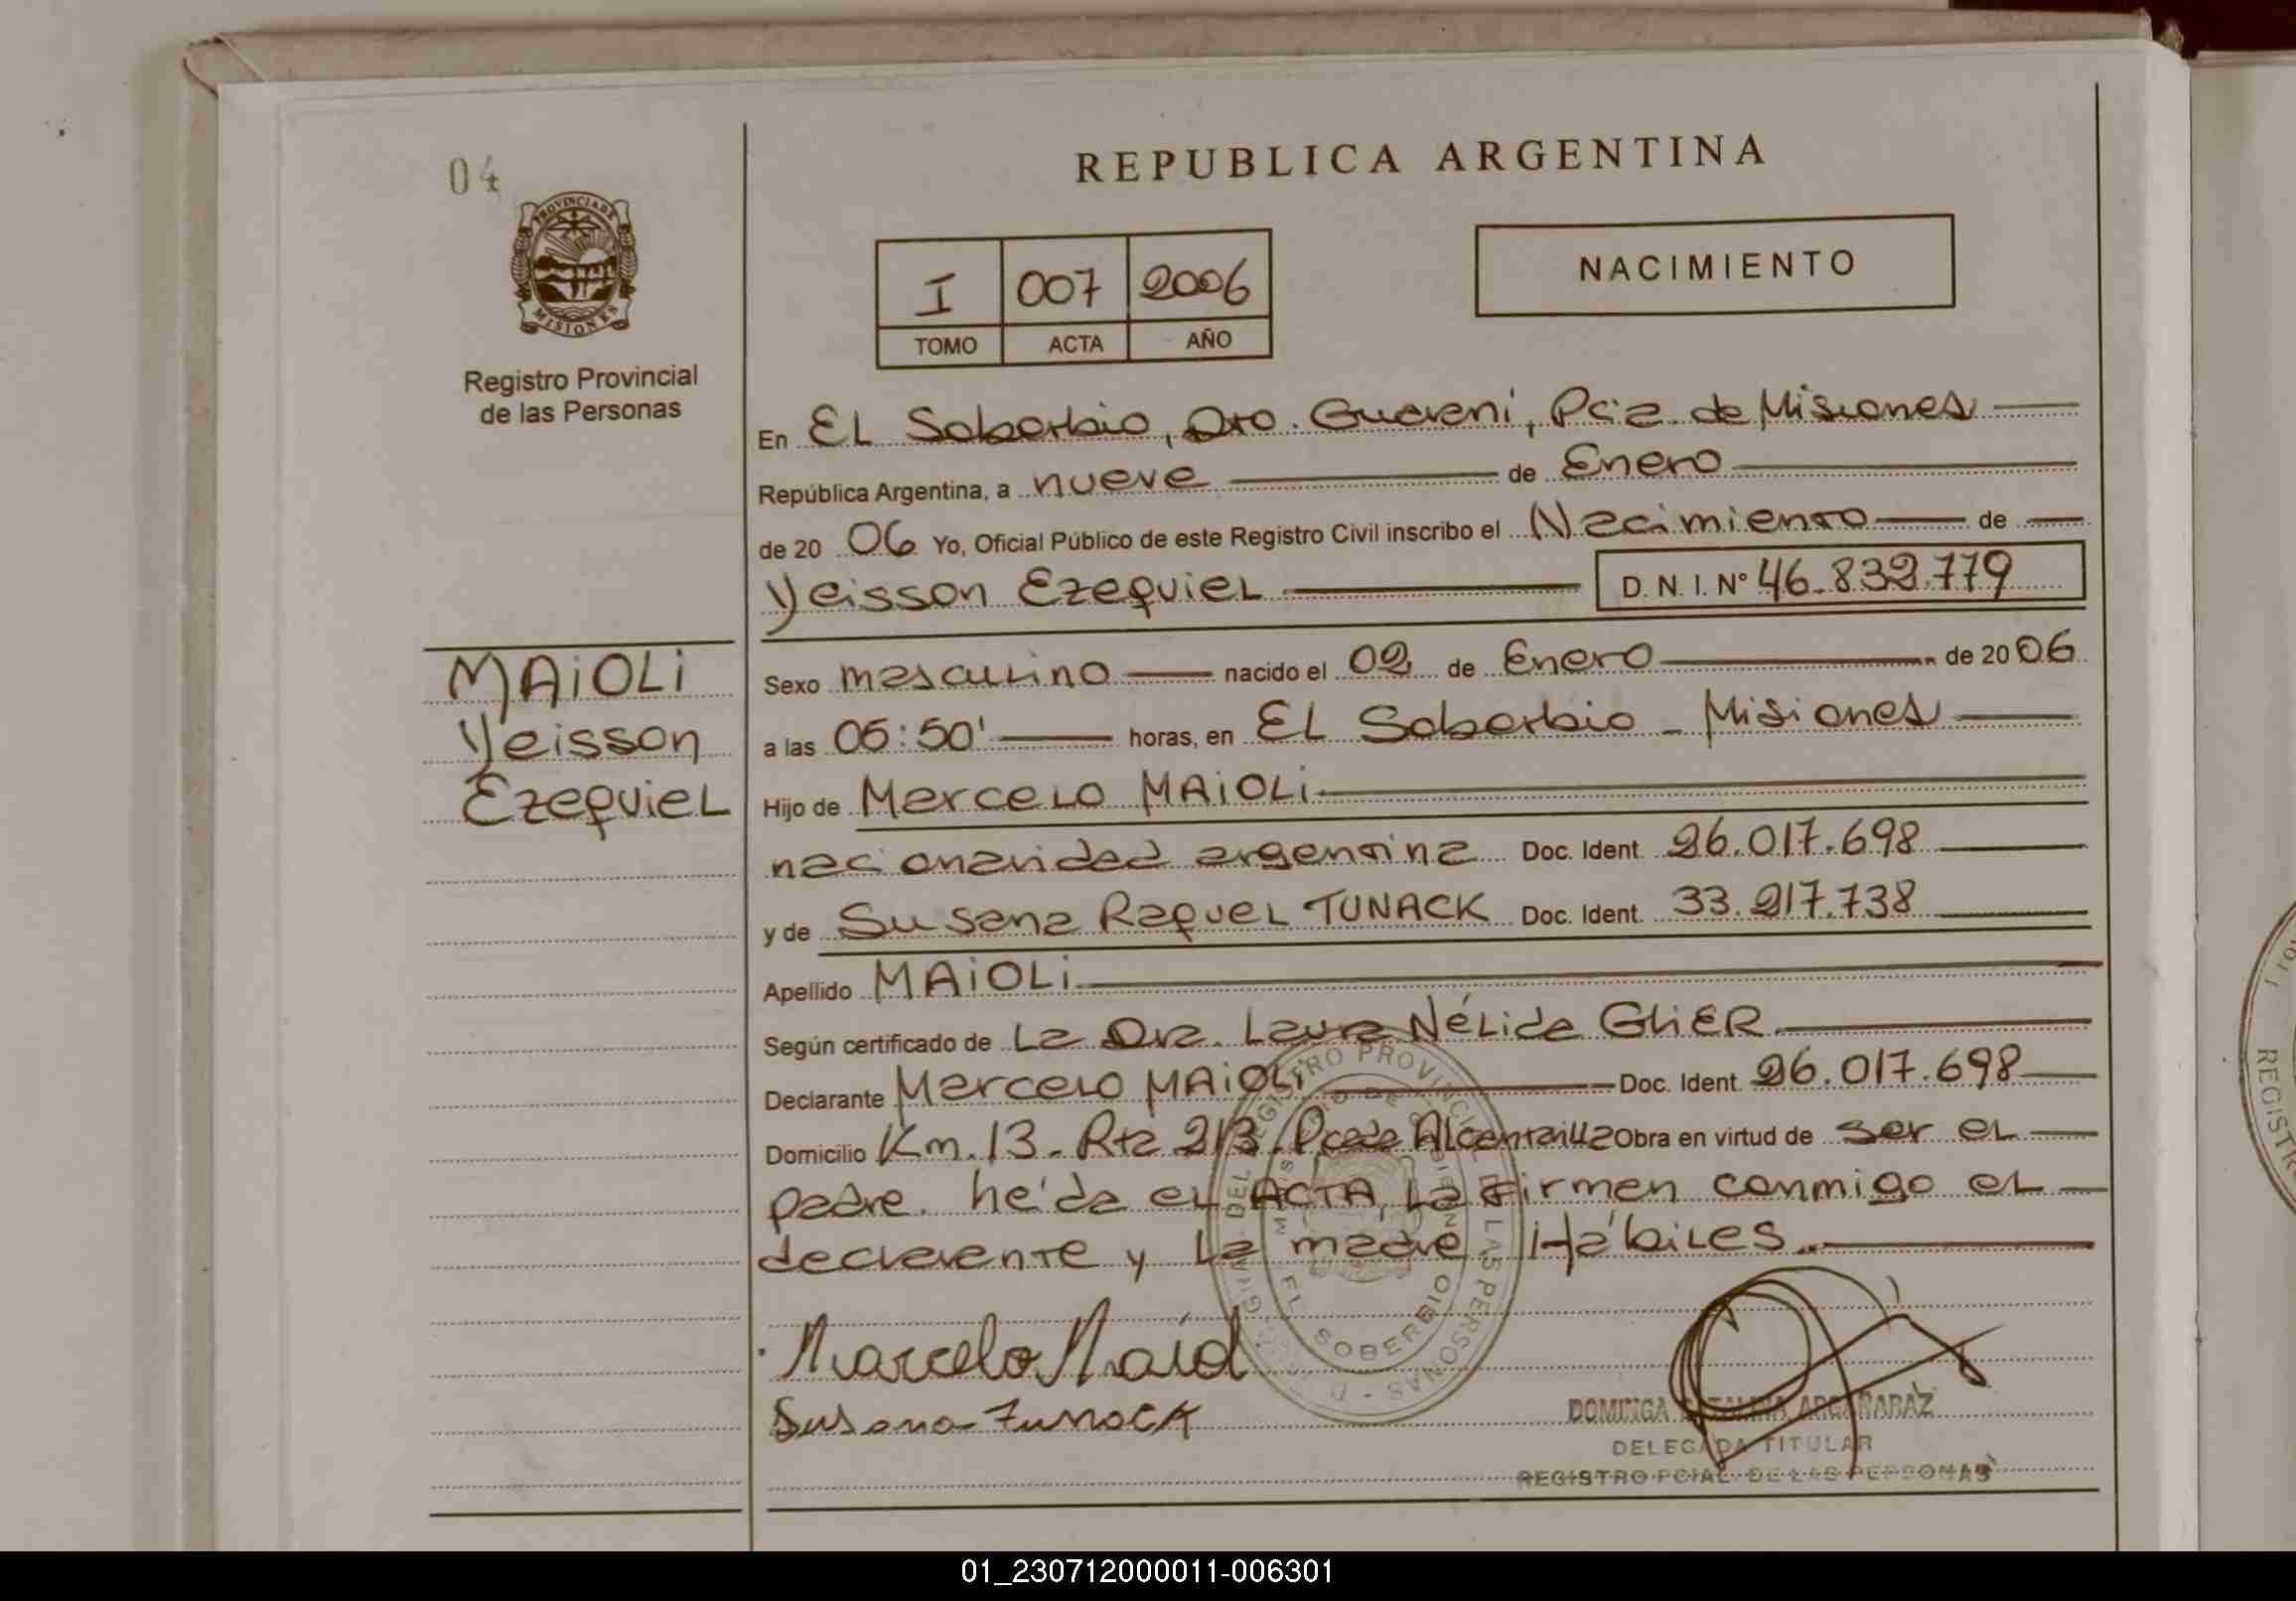 04
PROVINCIA DE
MISIONES
Registro Provincial
de las Personas
REPUBLICA ARGENTINA
I 007 2006
TOMO ACTA AÑO
NACIMIENTO
En EL Soberbio, Dto. Guaraní, Pcia. de Misiones
República Argentina, a nueve de Enero
de 20 06 Yo, Oficial Público de este Registro Civil inscribo el Nacimiento de
Yeisson Ezequiel D. N. I. N° 46.832.779
MAiOLi
Yeisson
Ezequiel
Sexo masculino nacido el 02 de Enero de 20 06
a las 05:50' horas, en EL Soberbio - Misiones
Hijo de Marcelo MAiOLi
nacionalidad argentina Doc. Ident. 26.017.698
y de Susana Raquel TUNACK Doc. Ident. 33.217.738
Apellido MAiOLi
Según certificado de La Dra. Laura Nélida GLiER
Declarante Marcelo MAiOLi Doc. Ident. 26.017.698
Domicilio Km. 13 - Rta 213. Alcantarilla Obra en virtud de ser el
padre. heída el ACTA, la firman conmigo el
declarante y la madre Hábiles.
Marcelo Maiol
Susana Tunack
EL SOBERBIO
DOMINGA CATALINA ARGAÑARAZ
DELEGADA TITULAR
REGISTRO PCIAL. DE LAS PERSONAS
REGISTR
01_230712000011-006301